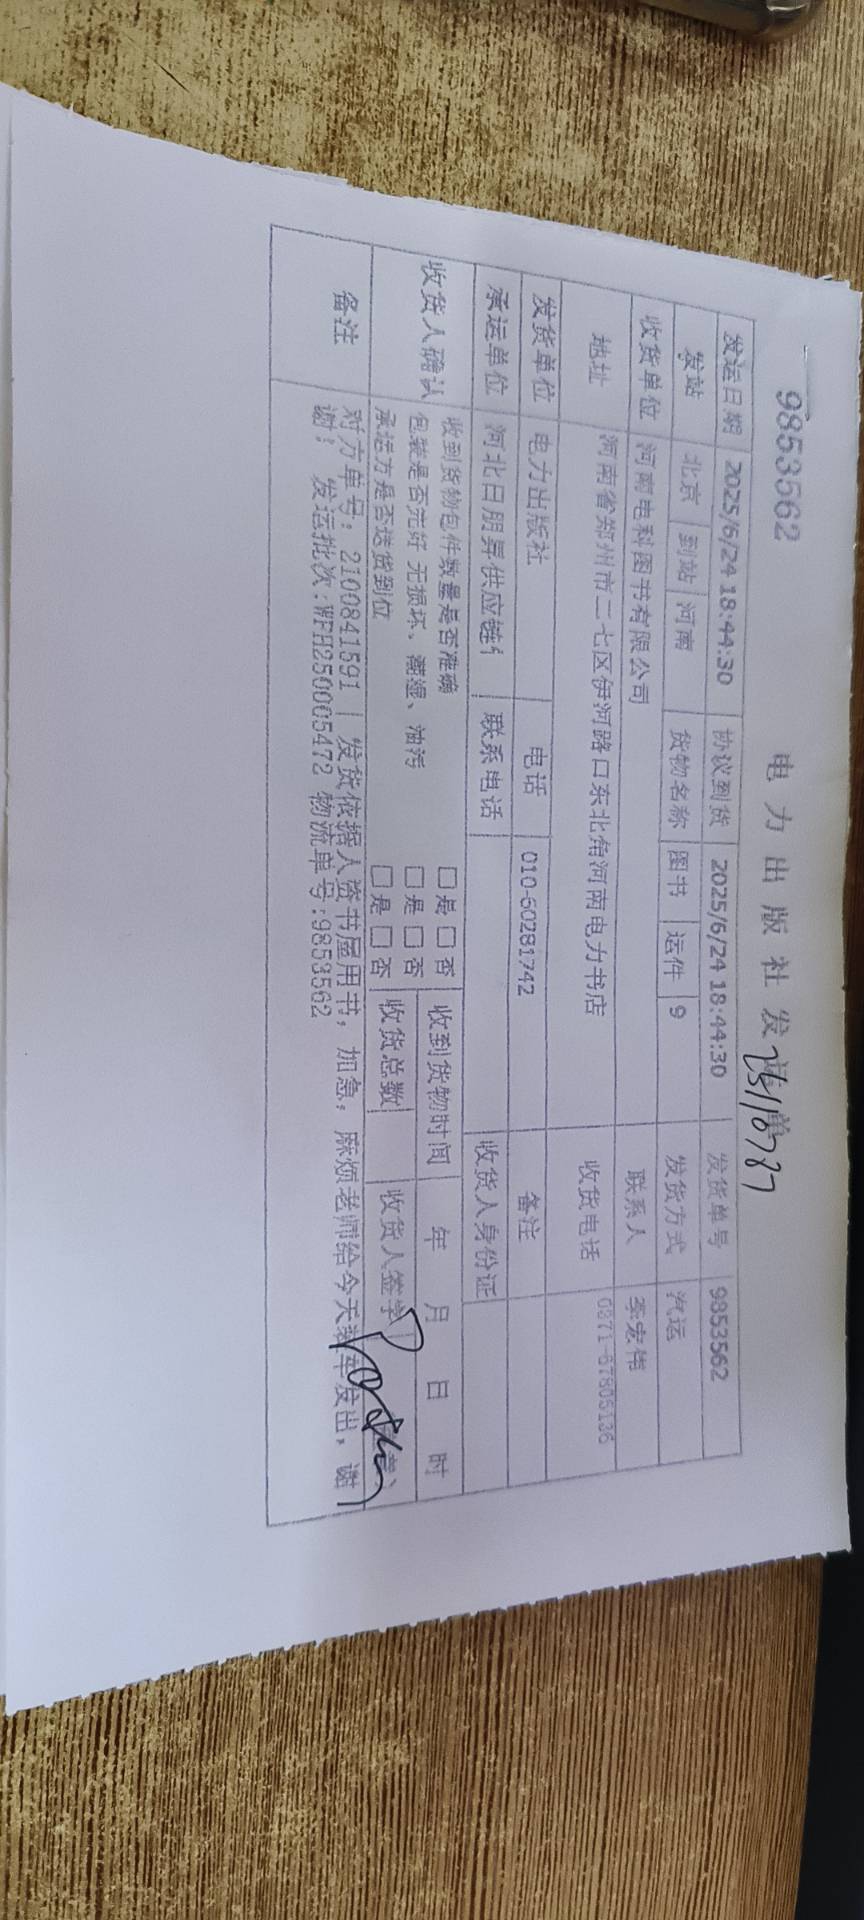 9853562
电力出版社发运单
25110787
发运日期 2025/6/24 18:44:30 协议到货 2025/6/24 18:44:30 发货单号 9853562
发站 北京 到站 河南 货物名称 图书 运件 9 发货方式 汽运
收货单位 河南电科图书有限公司 联系人 李宏伟
地址 河南省郑州市二七区伊河路口东北角河南电力书店 收货电话 0371-67805136
发货单位 电力出版社 电话 010-60281742 备注
承运单位 河北日朋昇供应链 联系电话 收货人身份证
收货人确认 收到货物包件数量是否准确 □是 □否 收到货物时间 年 月 日 时
包装是否完好 无损坏、潮湿、油污 □是 □否 收货总数 收货人签字
承运方是否送货到位 □是 □否
备注 对方单号：2100841591 | 发货依据人盗书屋用书，加急，麻烦老师给今天装车发出，谢
谢！ 发运批次:WFH250005472 物流单号:9853562